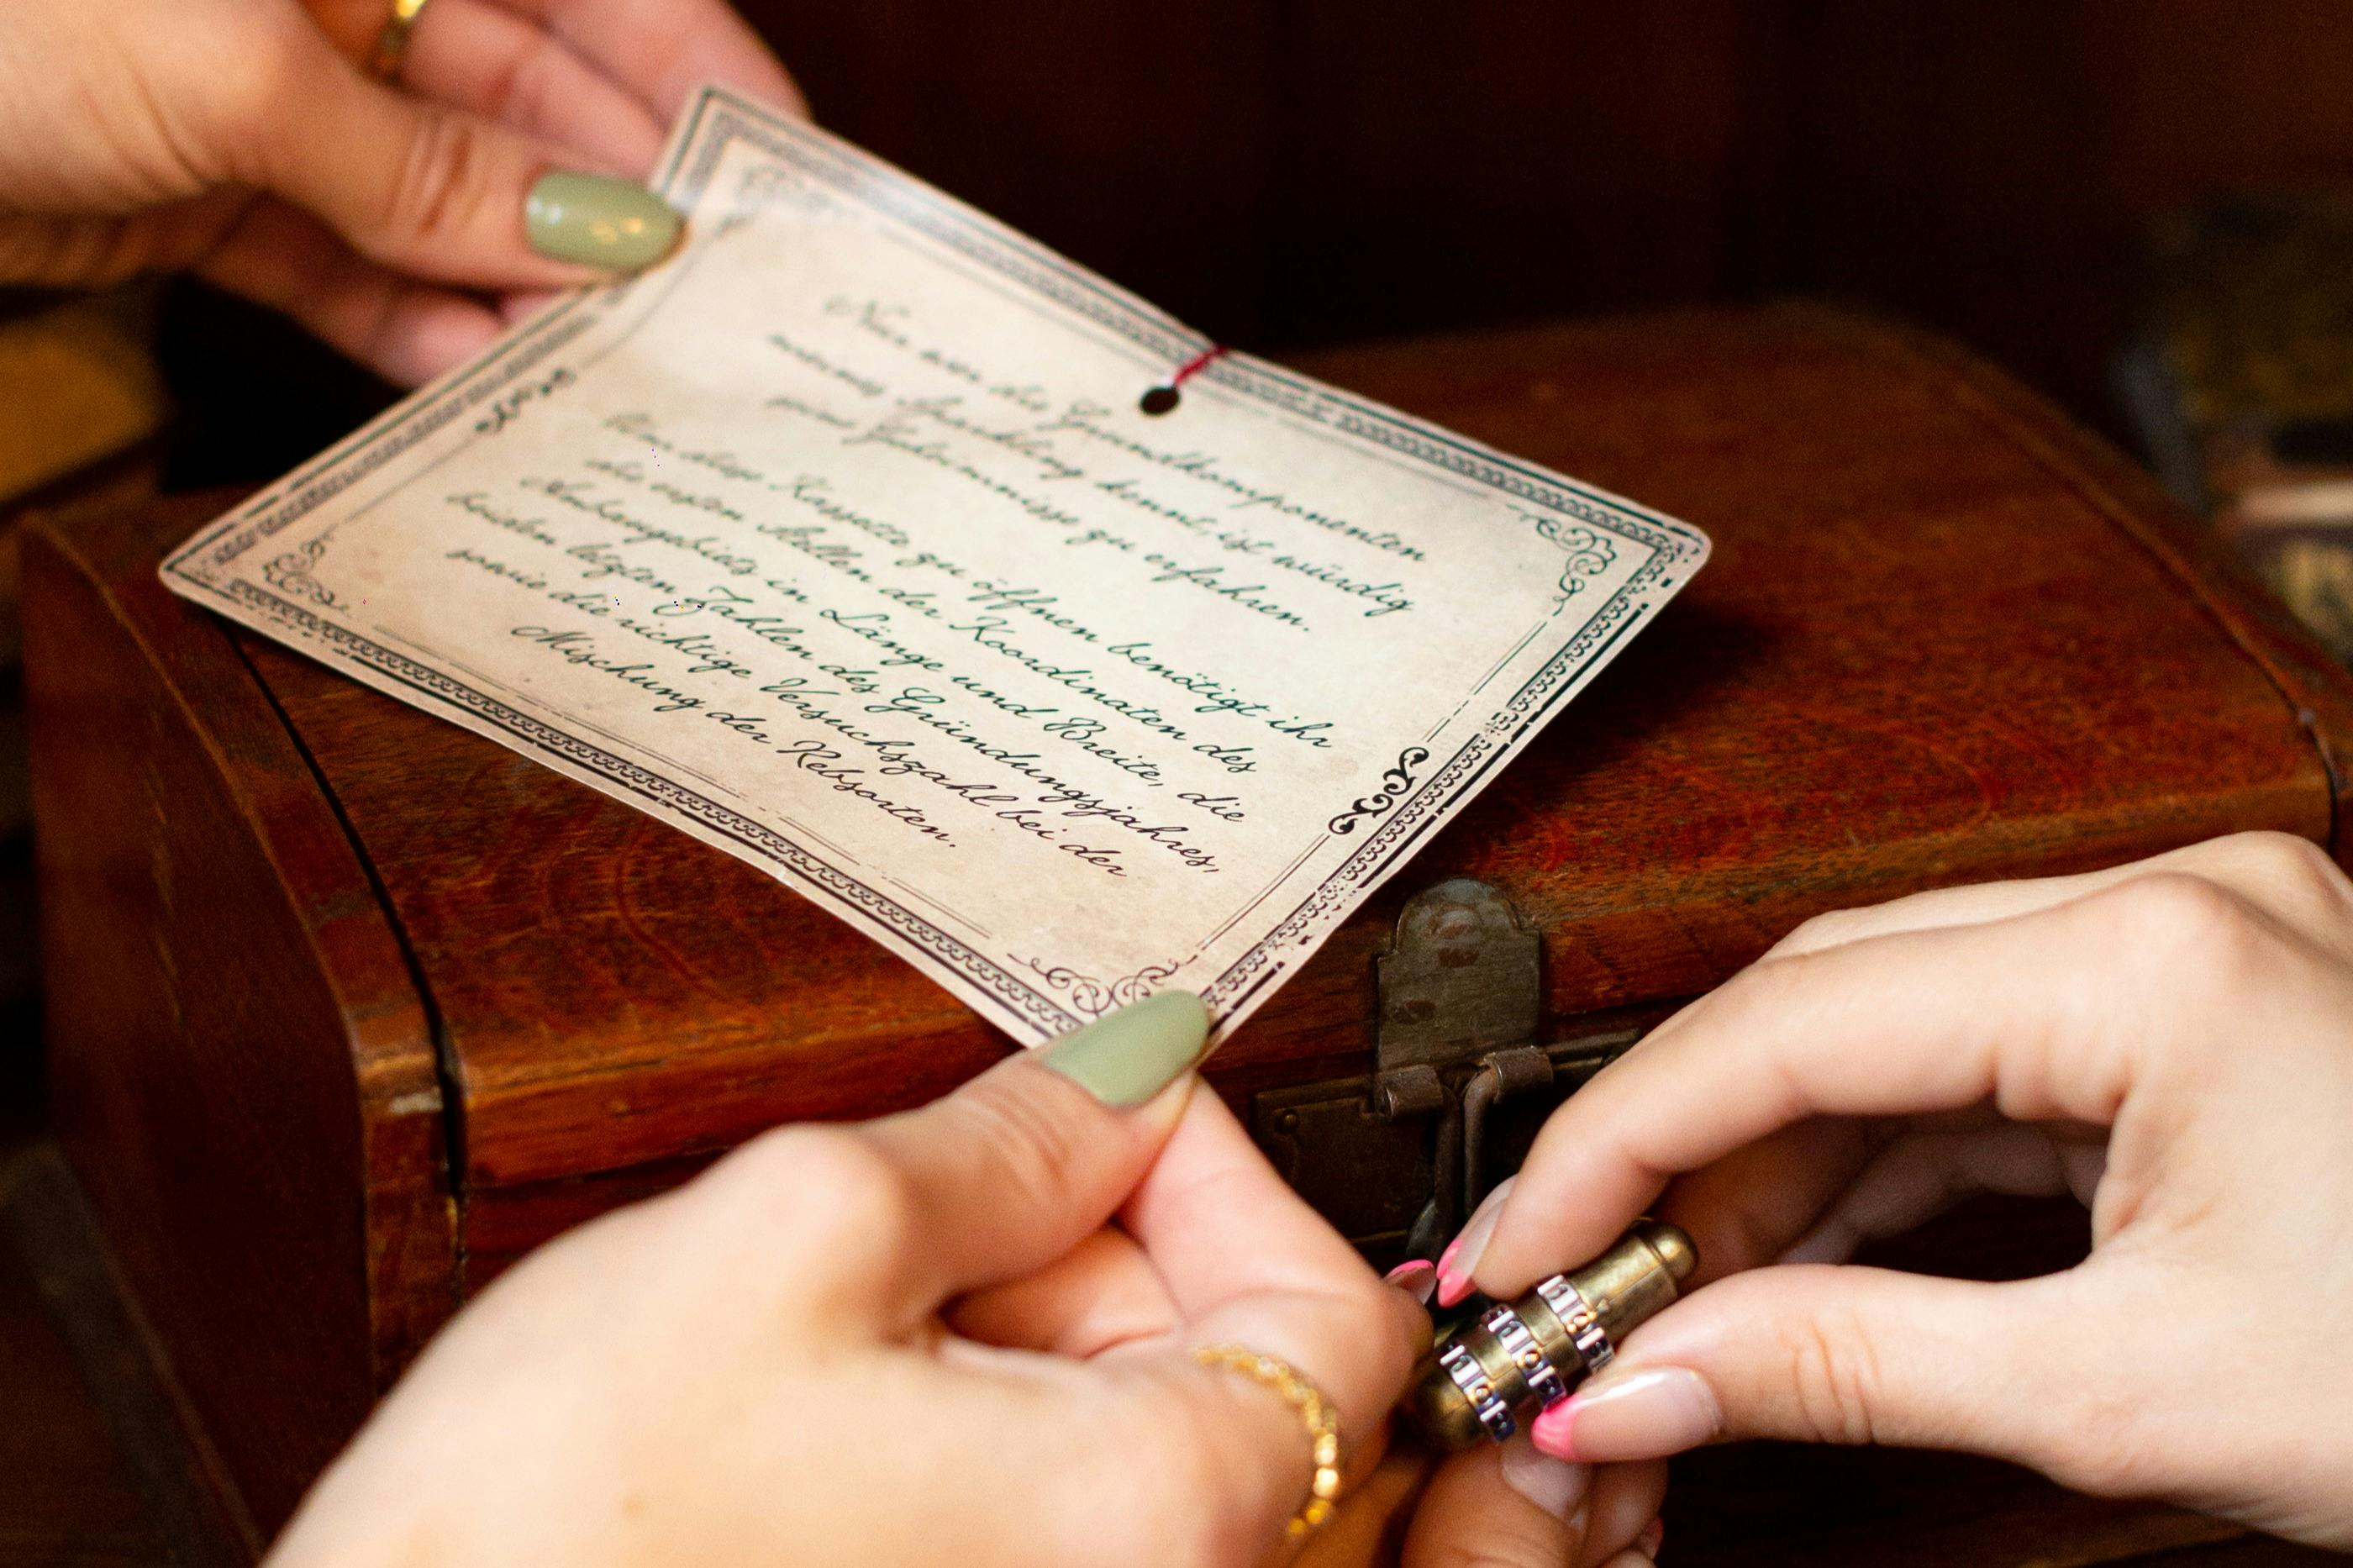 Nur wer die Grundkomponenten
meines Sparkling kennt, ist würdig
seine Geheimnisse zu erfahren.
Um diese Kassette zu öffnen benötigt ihr
die ersten Stellen der Koordinaten des
Anbaugebiets in Länge und Breite, die
beiden letzten Zahlen des Gründungsjahres,
sowie die richtige Versuchszahl bei der
Mischung der Rebsorten.